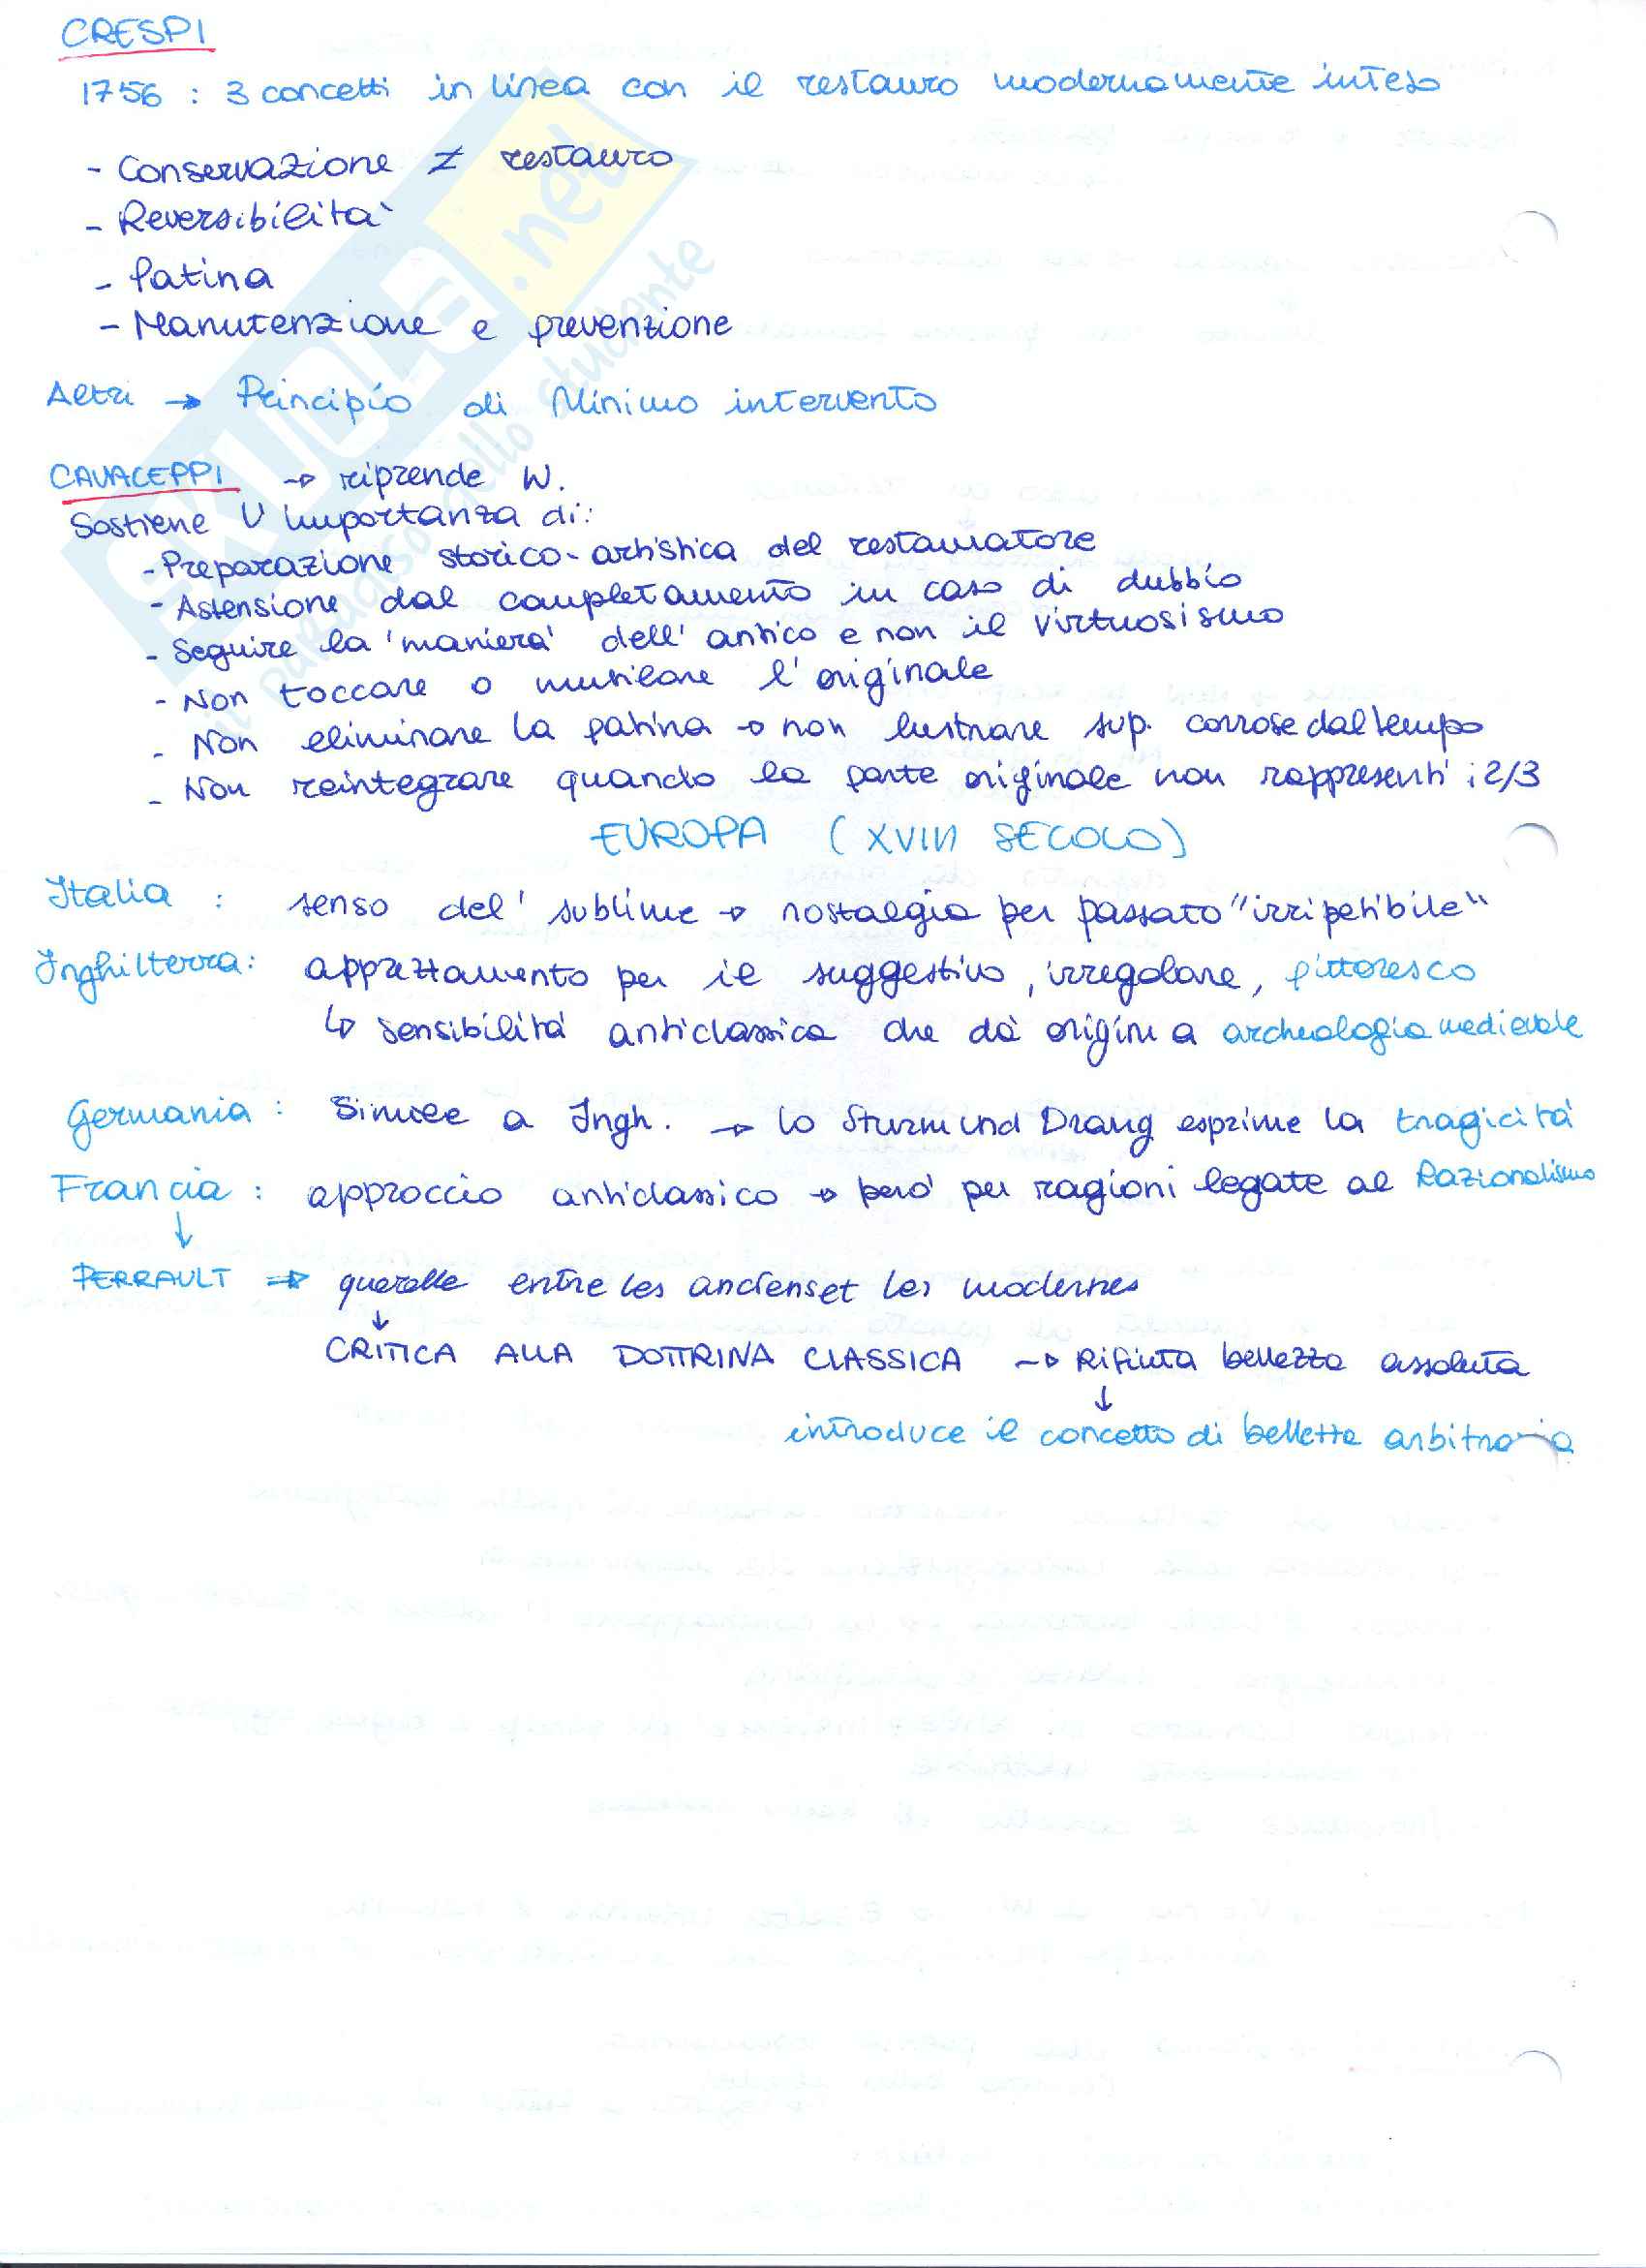 CRESPI
1756 : 3 concetti in linea con il restauro modernamente inteso
- Conservazione ≠ restauro
- Reversibilità
- Patina
- Manutenzione e prevenzione
Altri → Principio di Minimo intervento
CAVACEPPI → riprende W.
Sostiene l'importanza di:
- Preparazione storico-artistica del restauratore
- Astensione dal completamento in caso di dubbio
- Seguire la 'maniera' dell'antico e non il virtuosismo
- Non toccare o mutilare l'originale
- Non eliminare la patina → non lustrare sup. corrose dal tempo
- Non reintegrare quando la parte originale non rappresenti i 2/3
EUROPA (XVIII SECOLO)
Italia : senso del' sublime → nostalgia per passato "irripetibile"
Inghilterra: apprezzamento per il suggestivo, irregolare, pittoresco
↳ sensibilità anticlassica che dà origin a archeologia medievale
Germania : Simile a Ingh. → lo Sturm und Drang esprime la tragicità
Francia : approccio anticlassico → però per ragioni legate al Razionalismo
↓
PERRAULT ⇒ querelle entre les anciens et les modernes
↓
CRITICA ALLA DOTTRINA CLASSICA → Rifiuta bellezza assoluta
↓
introduce il concetto di bellezza arbitraria
SKUOLA.net
il paradiso dello studente